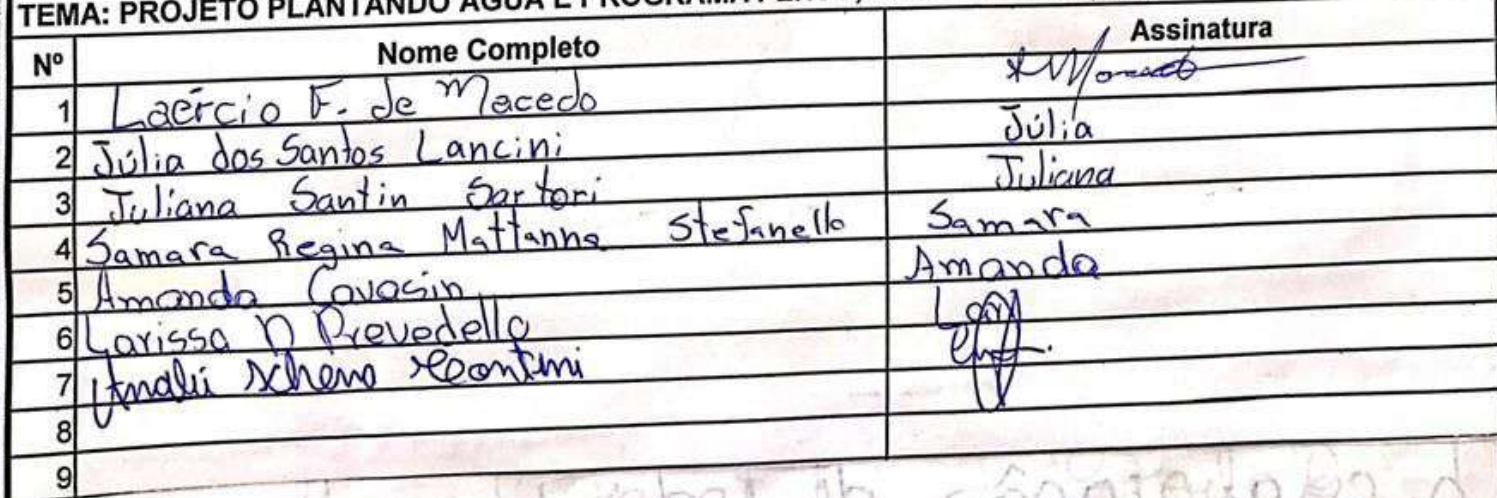 TEMA: PROJETO PLANTANDO ÁGUA E PROGRAMA
Nº Nome Completo Assinatura
1 Laércio F. de Macedo
2 Júlia dos Santos Lancini Júlia
3 Juliana Santin Sartori Juliana
4 Samara Regina Mattanna Stefanello Samara
5 Amanda Cavasin Amanda
6 Larissa D Prevedello Lari
7 Analú
8
9